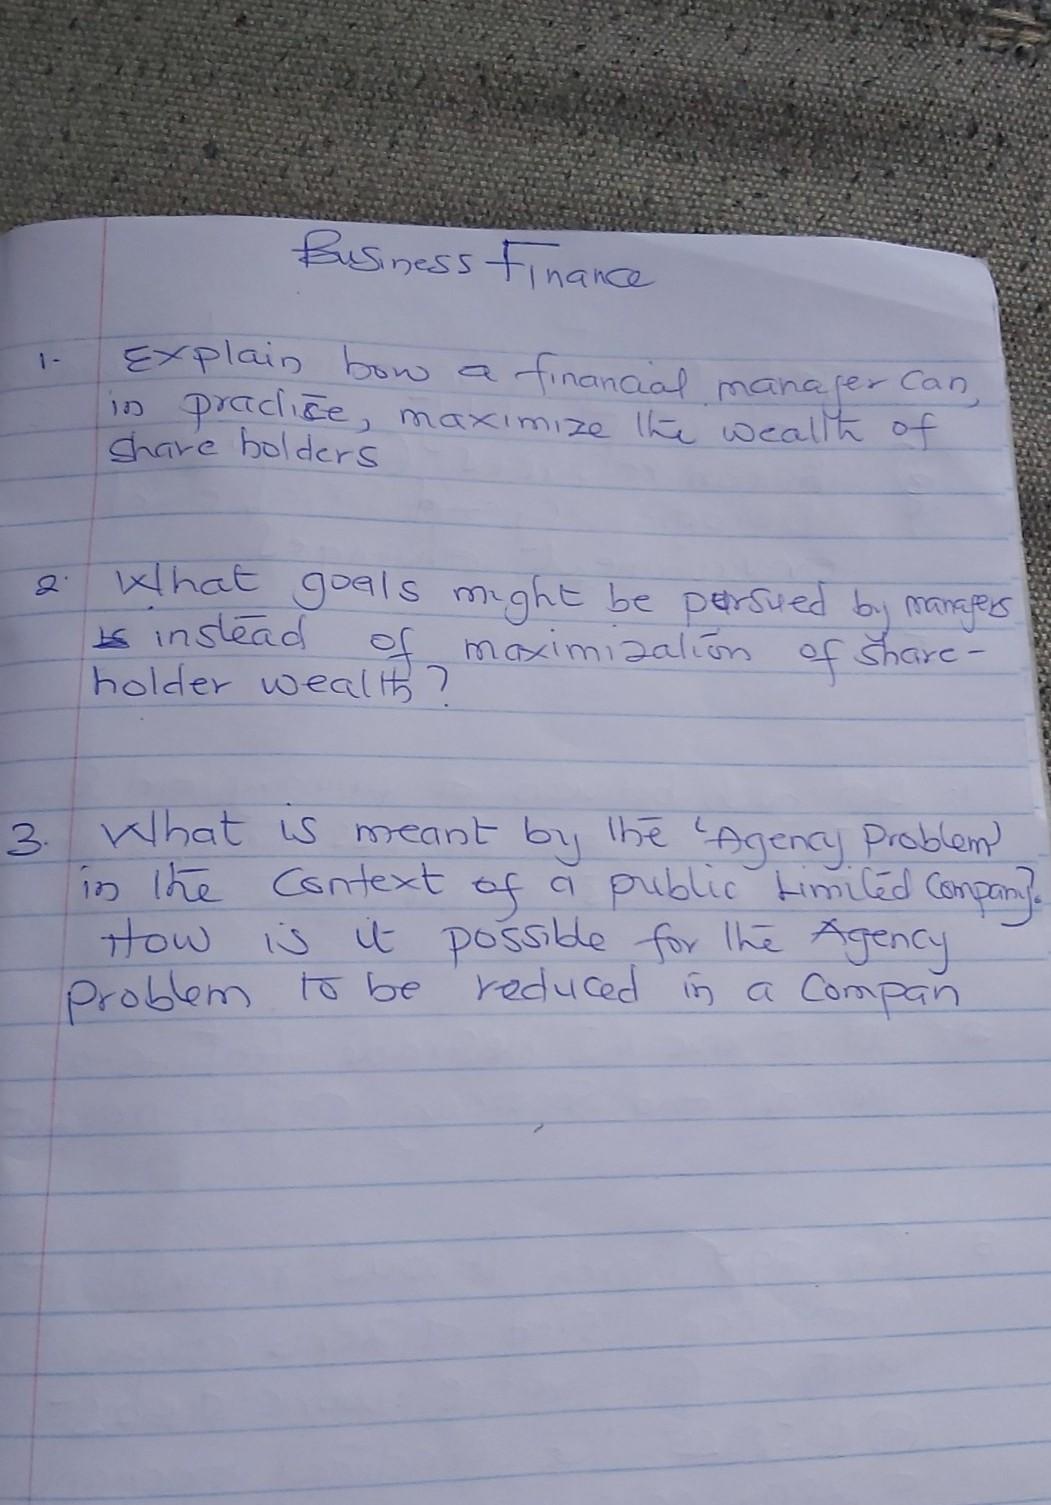 Business Finance
1- Explain how a financial manager can,
in practice, maximize the wealth of
share holders
2. What goals might be persued by managers
instead of maximization of share-
holder wealth?
3. What is meant by the 'Agency Problem'
in the Context of a public Limited Company?.
How is it possible for the Agency
problem to be reduced in a Compan